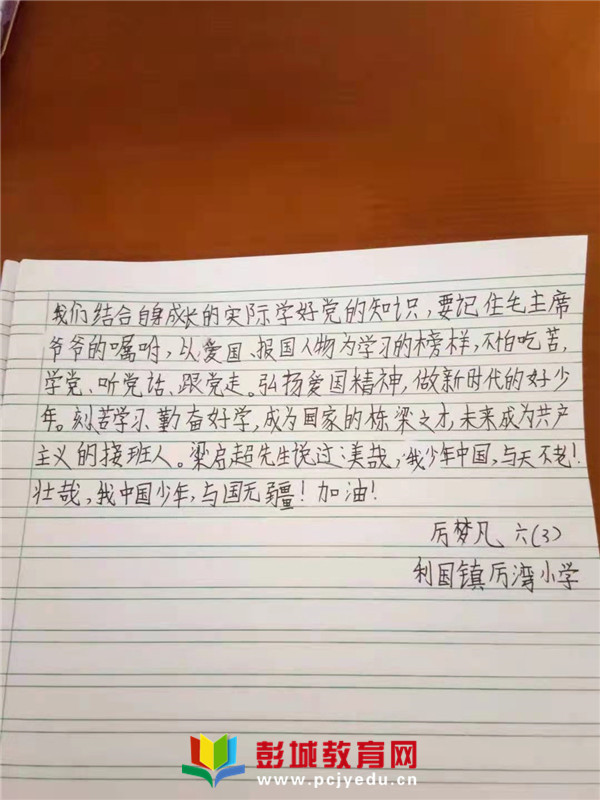 我们结合自身成长的实际学好党的知识，要记住毛主席
爷爷的嘱咐，以爱国、报国人物为学习的榜样，不怕吃苦，
学党、听党话、跟党走。弘扬爱国精神，做新时代的好少
年。刻苦学习、勤奋好学，成为国家的栋梁之才，未来成为共产
主义的接班人。梁启超先生说过：美哉，我少年中国，与天不老！
壮哉，我中国少年，与国无疆！加油！
厉梦凡 六(3)
利国镇厉湾小学
彭城教育网
www.pcjyedu.cn